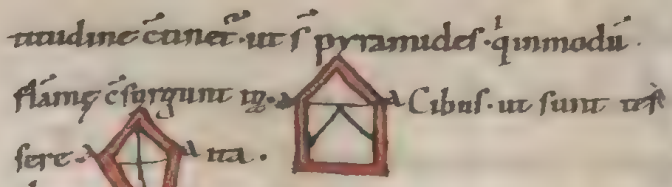 titudine c̄tinet᷑. ut s̄ pyramides. q̍ inmodū.
flāmę c̄surgunt ıg. a a Cibus. ut sunt tes
sere. a ita.